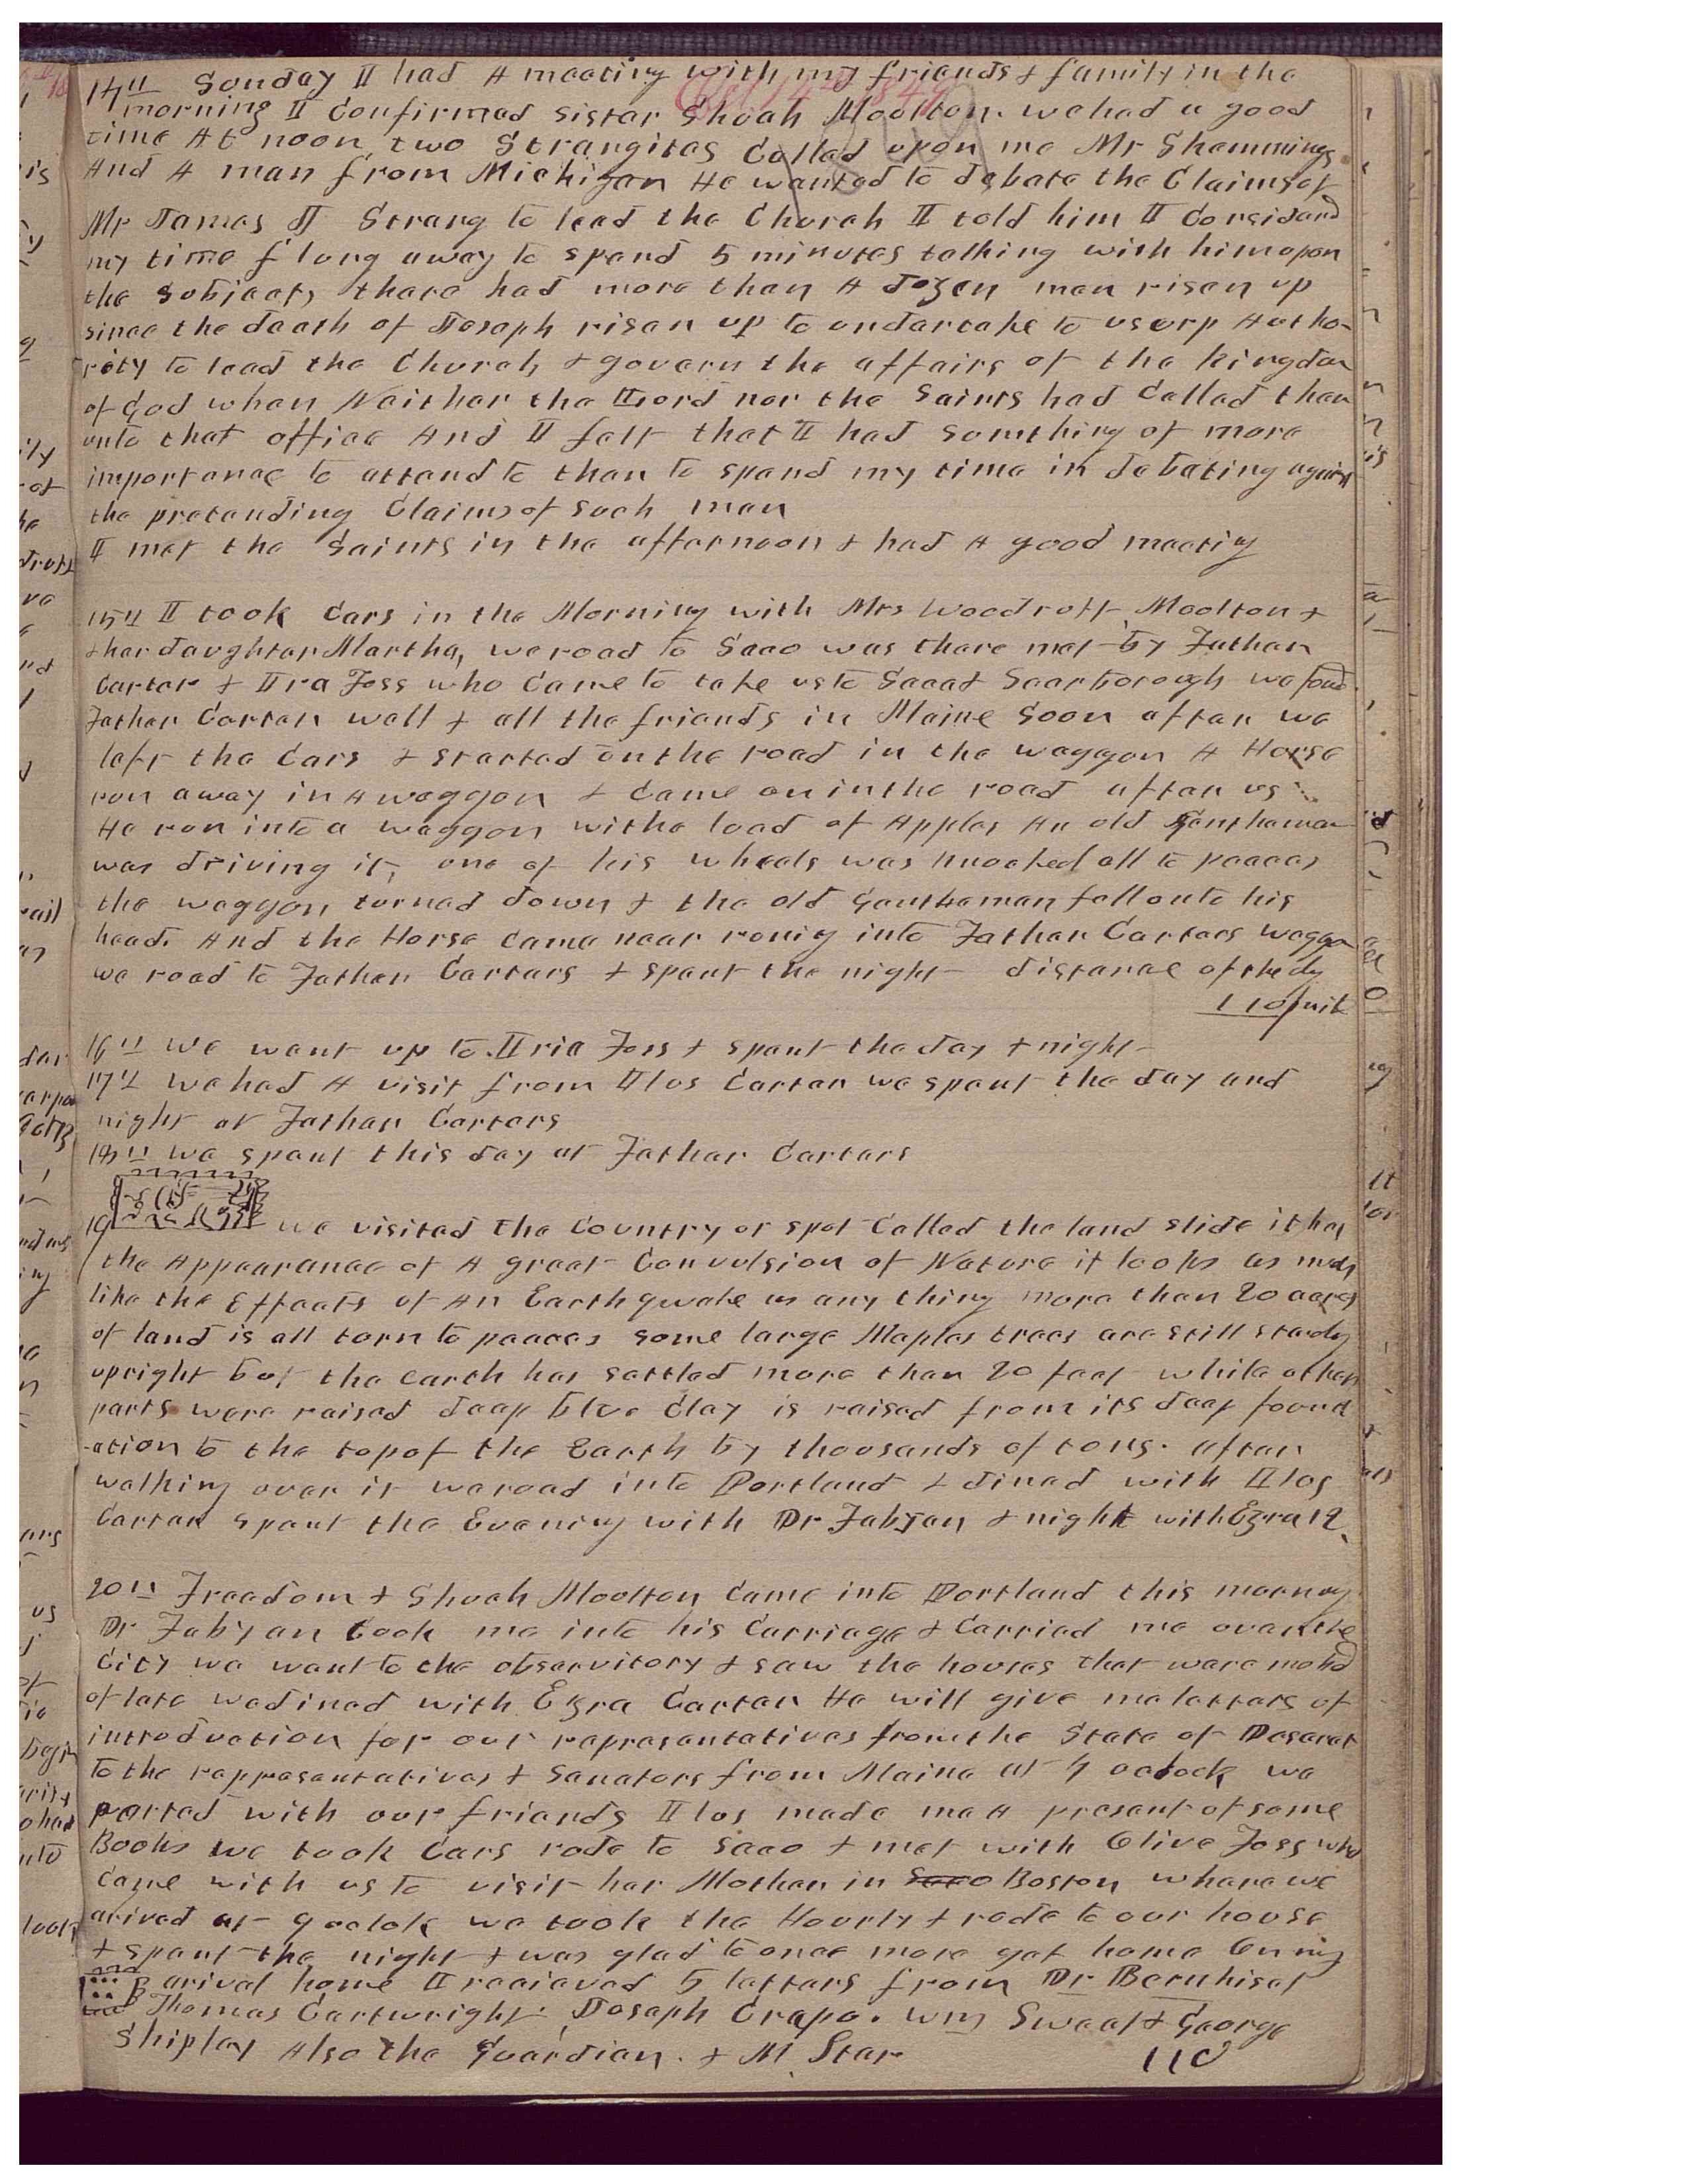 14th Sunday I had A meeting with my friends & family in the
Oct 14th 1849
1849
morning I Confirmed Sister Shuah Moulton. we had a good
time At noon two Strangites Called upon me Mr Shemmings
And A man from Michigan He wanted to debate the Claims of
Mr James J Strang to lead the Church I told him I Considerd
my time flong away to spend 5 minutes talking with him upon
the subject, there had more than A dozen men risen up
since the death of Joseph risen up to undertake to usurp Autho-
rity to lead the Church & govern the affairs of the kingdom
of God when Neither the Lord nor the Saints had Called them
unto that office And I felt that I had somthing of more
importance to attend to than to spend my time in debating against
the pretending Claims of such men
I met the Saints in the afternoon & had A good meeting
15th I took Cars in the Morning with Mrs Woodruff, Moulton &
& her daughter Martha, we road to Saco was there met by Father
Carter & Ira Foss who Came to take us to Saca & Scarborough we found
Father Carter well & all the friends in Maine Soon after we
left the Cars & started on the road in the waggon A Horse
run away in A waggon & Came on in the road after us
He run into a waggon withe load of Apples An old Gentleman
was driving it, one of his wheels was knocked all to peaces
the waggon turned down & the old Gentleman fell onto his
head. And the Horse Came near runing into Father Carters waggon
we road to Father Carters & spent the night distance of the dy
110 mile
16th we went up to Iria Foss & spent the day & night
17th we had A visit from Ilos Carter we spent the day and
night at Father Carters
18th we spent this day at Father Carters
19 we visited the Country or spot Called the land slide it has
the Appearance of A great Convulsion of Nature it looks as much
like the Effects of An Earthquake as any thing more than 20 acres
of land is all torn to peaces some large Maples trees are still standg
upright but the earth has settled more than 20 feet while other
parts were raised deep blue Clay is raised from its deep found
-ation to the top of the Earth by thousands of tons. after
walking over it we road into Portland & dined with Ilos
Carter spent the Evening with Dr Fabyan & night with Ezra
20th Freedom & Shuah Moulton Came into Portland this morning
Dr Fabyan took me into his Carriage & Carried me over the
City we went to the observitory & saw the houses that were
of late we dined with Ezra Carter He will give me letters of
introduction for our representatives from the State of Deseret
to the reppresentatives & Senators from Maine at 4 oclock we
parted with our friends Ilos made me A present of some
Books we took Cars rode to Saco & met with Olive Foss who
Came with us to visit her Mother in Saco Boston where we
arived at 9 oclok we took the Hourly & rode to our house
& spent the night & was glad to once more get home On my
arival home I received 5 letters from Dr Bernhisel
Thomas Cartwright. Joseph Crapo. Wm Sweat & George
Shipley Also the Guardian. & M Star
110